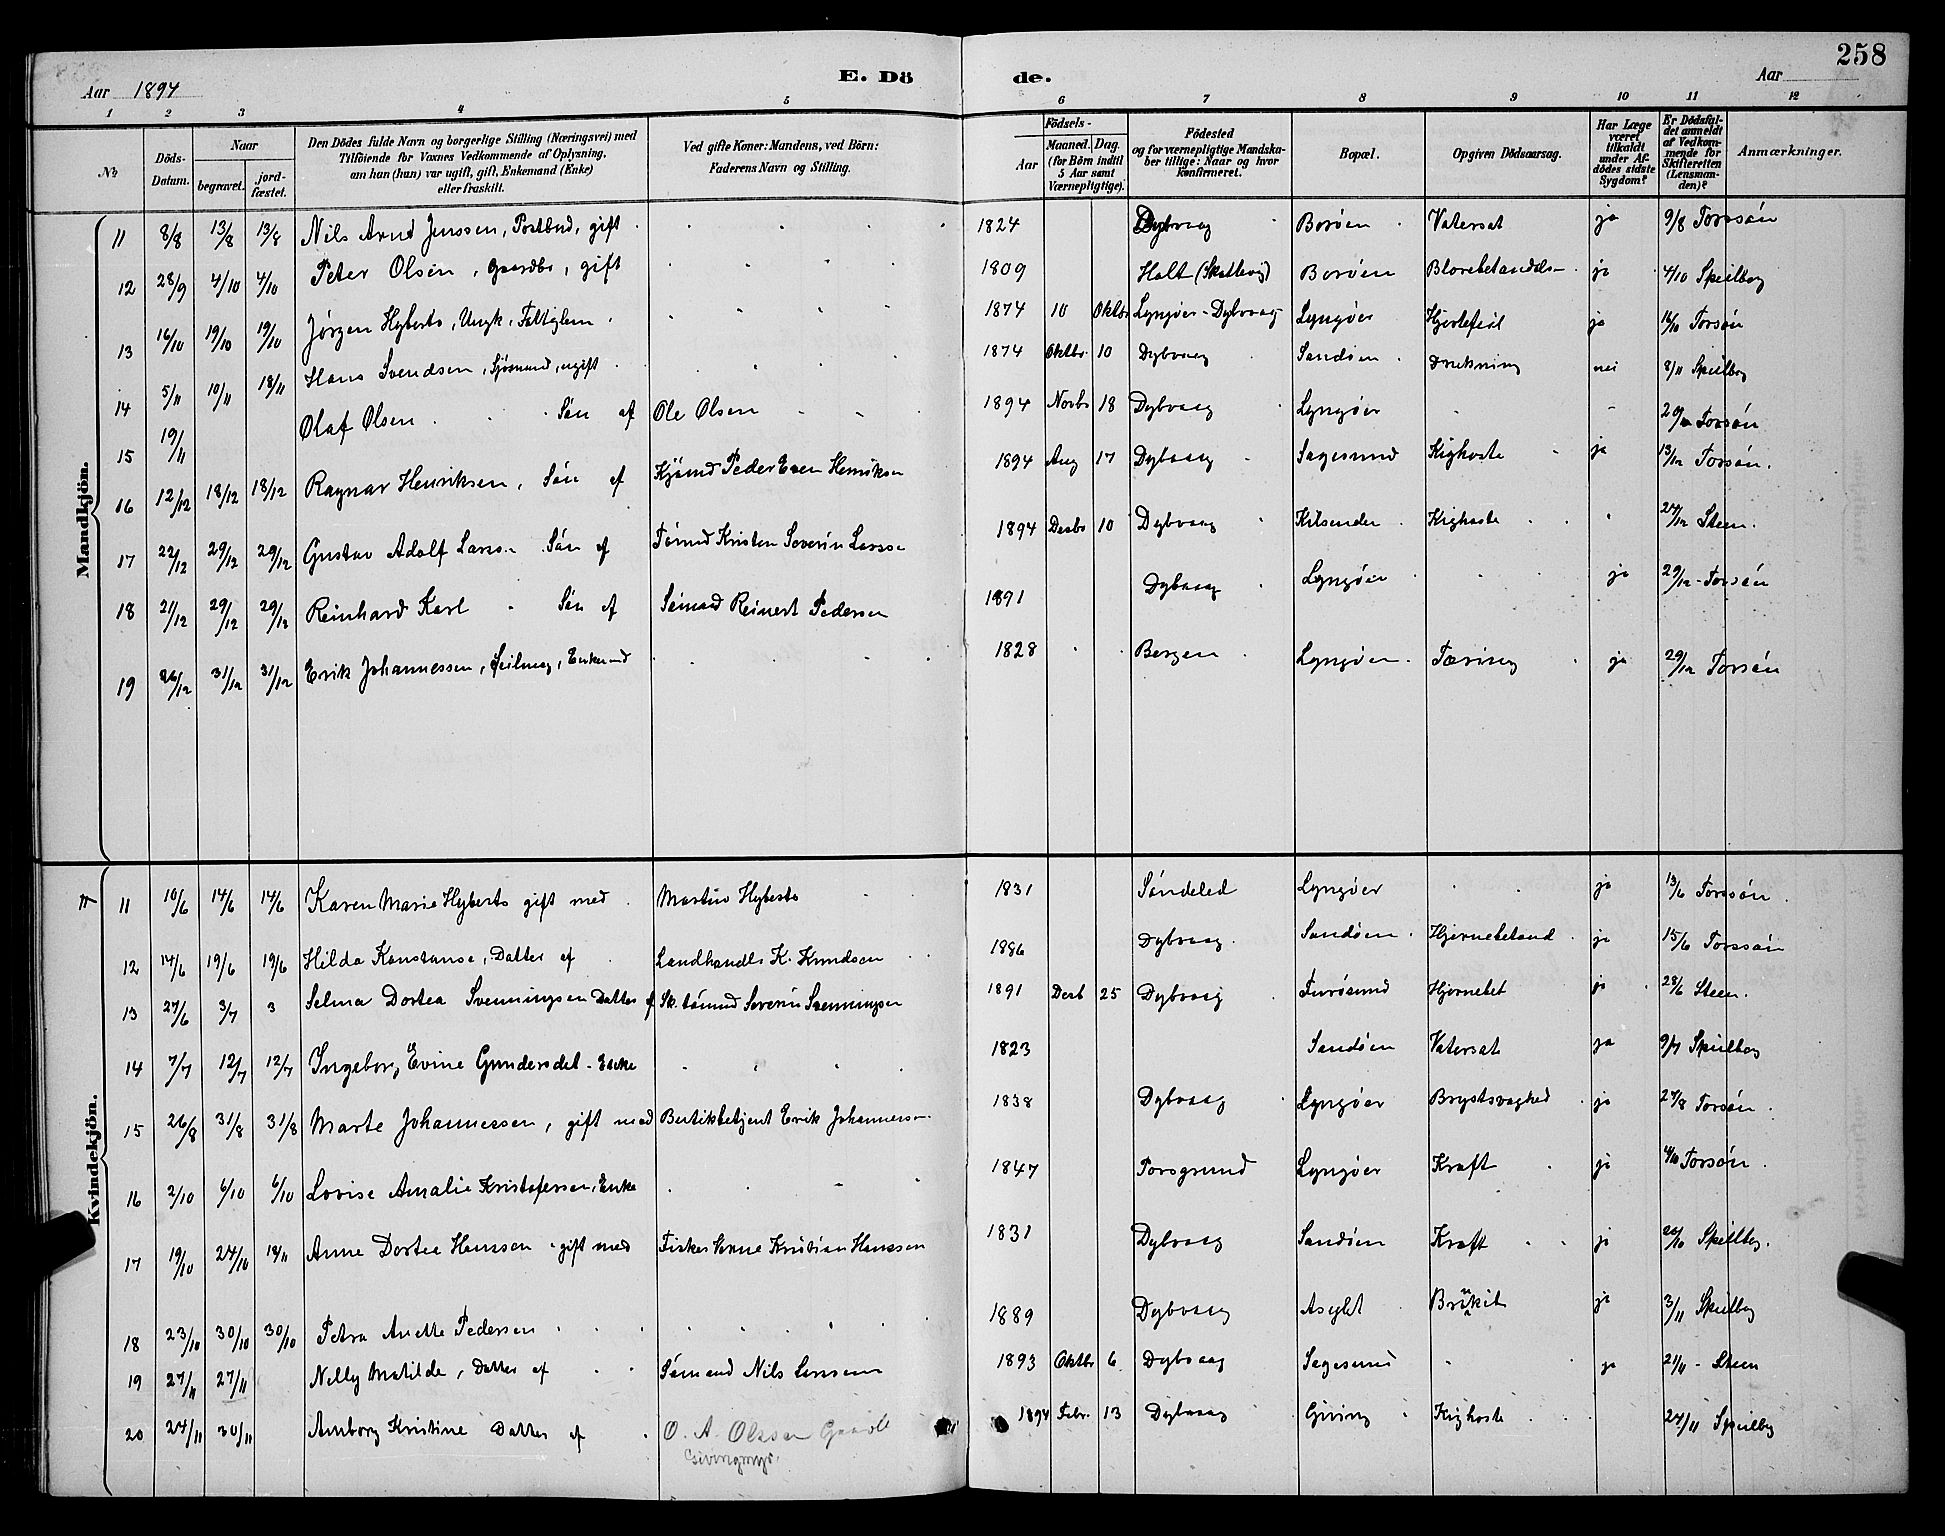 258
Aar 1894 E. Dö de. Aar
1 2 3 4 5 6 7 8 9 10 11 12
No
Döds-Datum.
Naar
begravet.
jord-fæstet.
Den Dödes fulde Navn og borgerlige Stilling (Næringsvei) med
Tilföiende for Voxnes Vedkommende af Oplysning,
om han (hun) var ugift, gift, Enkemand (Enke)
eller fraskilt.
Ved gifte Koner: Mandens, ved Börn:
Faderens Navn og Stilling.
Födsels-
Aar
Maaned. Dag.
(for Börn indtil
5 Aar samt
Værnepligtige).
Födested
og for værnepligtige Mandska-
ber tillige: Naar og hvor
konfirmeret.
Bopæl.
Opgiven Dödsaarsag.
Har Læge
været
tilkaldt
under Af-
dödes sidste
Sygdom?
Er Dödsfal-
det anmeldt
af Vedkom-
mende for
Skifteretten
(Lensman-
den)?
Anmærkninger.
Mandkjön.
11 8/8 13/8 13/8 Nils Arnt Jenssen, Postbud, gift 1824 Dybvaag Borøen Vatersot ja 9/8 Torssön
12 28/9 4/10 4/10 Peter Olsen, Gaardbr, gift 1809 Holt Borøen ja 4/10 Speilberg
13 16/10 19/10 19/10 Jørgen Hyberts, Ungk. 1874 10 Oktbr Lyngöer - Dybvaag Lyngöer Hjertefeil ja 16/10 Torsön
14 5/11 10/11 18/11 Hans Svendsen, Sjömand, ugift 1874 Oktbr. 10 Dybvaag Sandöen Drukning nei 8/11 Speilberg
15 19/11 Olaf Olsen Sön af Ole Olsen 1894 Novbr 18 Dybvaag Lyngöer Torsön
16 12/12 18/12 18/12 Ragnar Henriksen, Sön af Peder Even Henriksen 1894 Aug 17 Dybvaag Sagesund Kighoste ja 13/12 Torsön.
17 22/12 29/12 29/12 Gustav Adolf Larsen Sön af Sömnd Kristen Severin Larsen 1894 Desbr 10 Dybvaag Kighoste Steen.
18 21/12 29/12 29/12 Reinhard Karl Sön af Sömand Reinert Pedersen 1891 Dybvaag Lyngöer ja 29/12 Torsön
19 26/12 31/12 31/12 Erik Johannessen, Enkemd 1828 Bergen Lyngöer Tæring ja 29/12 Torsön
Kvindekjön.
11 10/6 14/6 14/6 Karen Marie Hyberts gift med Martin Hyberts 1831 Söndeled Lyngöer ja 13/6 Torssön
12 14/6 19/6 19/6 Hilda Konstanse, Datter af Landhandler K. Knudsen 1886 Dybvaag. Sandöen Hjernebetænd ja 15/6 Torssön
13 27/6 3/7 3 Selma Dortea Svenningsen Datter af Severin Svenningsen 1891 Desb 25 Dybvaag Furösund Hjernebet ja 28/6 Steen.
14 7/7 12/7 12/7 Ingeborg Evine Gundersdat - Enke 1823 Sandöen Vatersot ja 9/7 Speilberg
15 26/8 31/8 31/8 Marte Johannessen, gift med Erik Johannessen 1838 Dybvaag Lyngöer Brystsvaghed ja 27/8 Torsön
16 2/10 6/10 6/10 Lovise Amalie Kristofersen, Enke 1847 Porsgrund Lyngöer Kræft ja Torsön
17 19/10 24/10 Anne Dortea Hanssen gift med Kristian Hanssen 1831 Dybvaag Sandöen Kræft ja Speilberg.
18 23/10 30/10 30/10 Petra Anette Pedersen 1889 Dybvaag Askilt ja 3/11 Speilberg
19 27/11 27/11 Nelly Matilde, Datter af Sömand Nils Larssen 1893 Oktbr 6 Dybvaag Sagesund ja Steen
20 24/11 30/11 Amborg Kristine Datter af O. A. Olssen Gaardb 1894 Febr. 13 Dybvaag Giving Kighoste 24/11 Speilberg
Givingmyr.